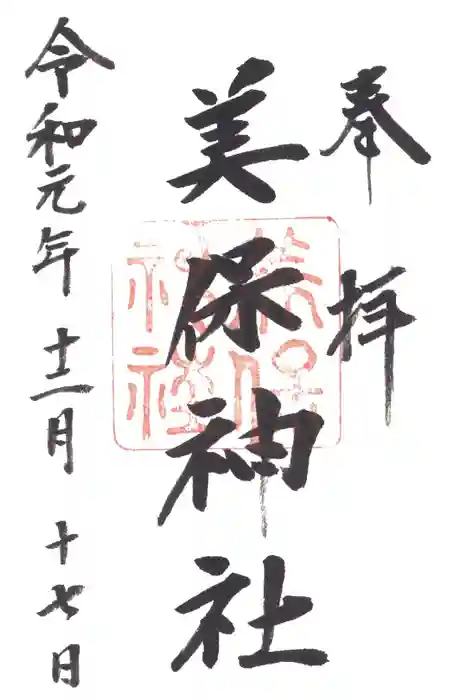 奉拝
美保神社
美保神社
令和元年十二月十七日